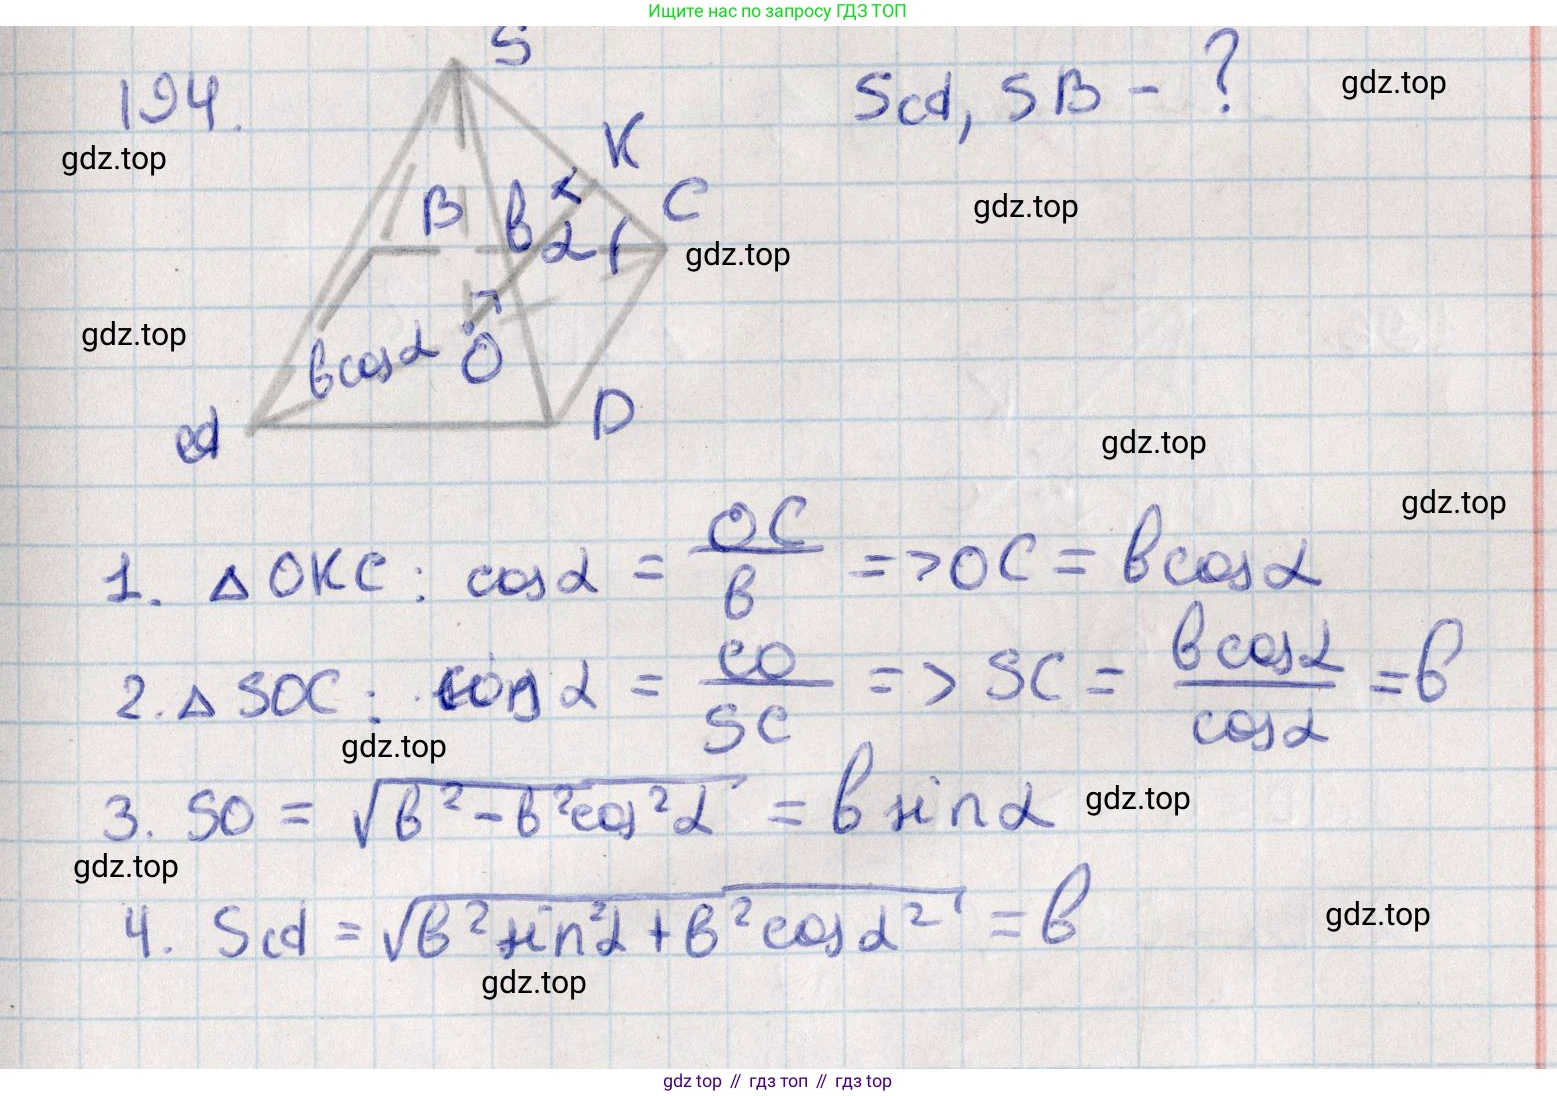 Ищите нас по запросу ГДЗ ТОП
194.
S
SA, SB - ?
gdz.top
gdz.top
K
B
b
α
C
gdz.top
gdz.top
gdz.top
b cos α
O
A
D
gdz.top
gdz.top
1. △ OKC: cos α = OC/b => OC = b cos α
2. △ SOC: cos α = CO/SC => SC = b cos α/cos α = b
gdz.top
3. SO = √b² - b² cos² α = b sin α
gdz.top
gdz.top
4. SA = √b² sin² α + b² cos α² = b
gdz.top
gdz.top
gdz top // гдз топ // гдз top